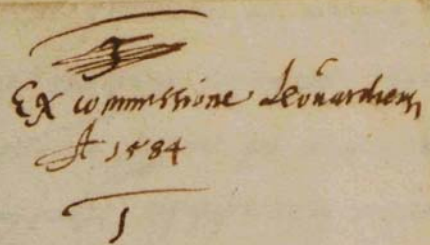 Ex commissione Leonardien
A 1584
1